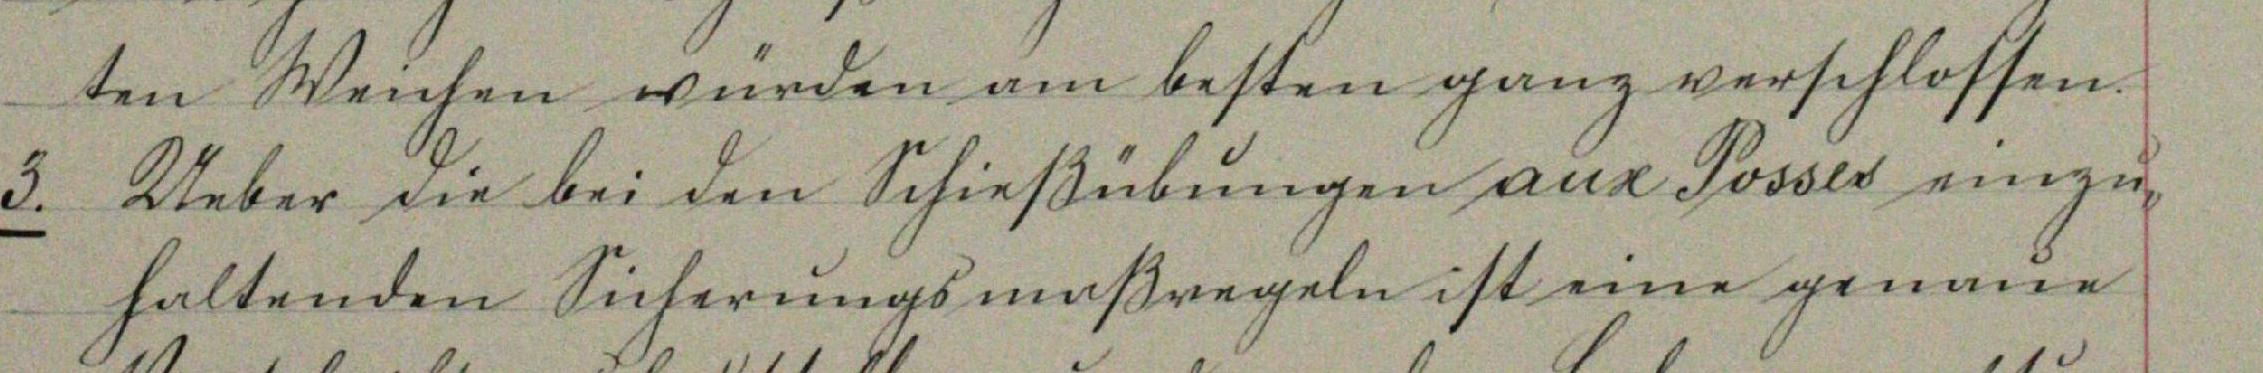 ten Weichen würden am besten ganz verschlossen.
3. Ueber die bei den Schießübungen aux Posses einzu„
haltenden Sicherungsmaßregeln ist eine genaue